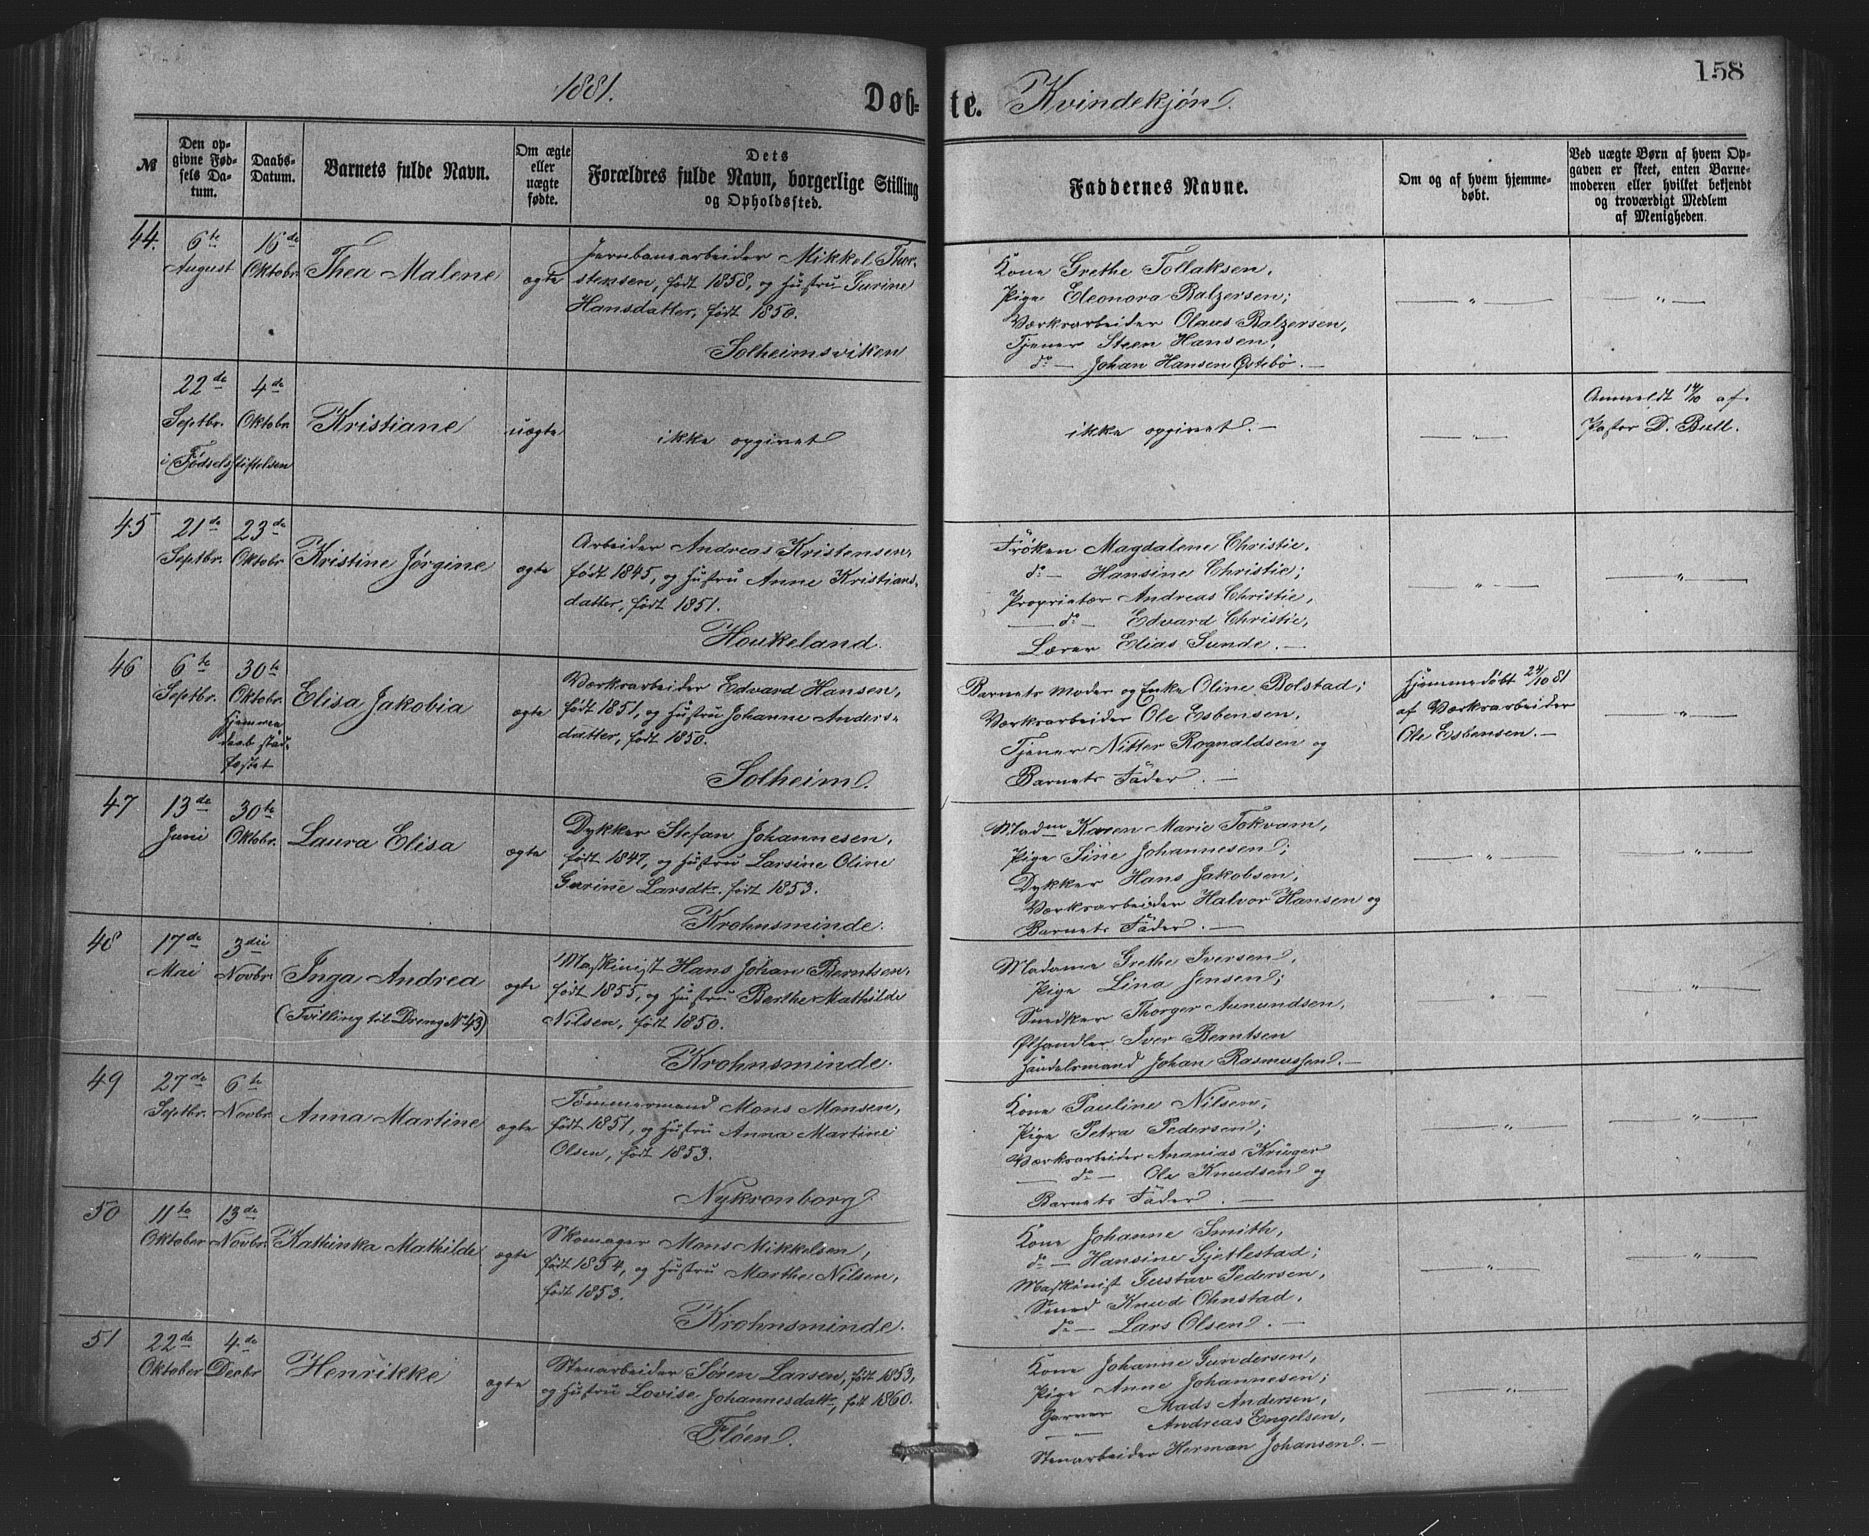 158
1881.
Døb-te. Kvindekjøn.
№
Den op-
givne Fød-
sels Da-
tum.
Daabs-
Datum.
Barnets fulde Navn.
Om ægte
eller
uægte
fødte.
Dets
Forældres fulde Navn, borgerlige Stilling
og Opholdssted.
Faddernes Navne.
Om og af hvem hjemme-
døbt.
Ved uægte Børn af hvem Op-
gaven er skeet, enten Barne-
moderen eller hvilket bekjendt
og troværdigt Medlem
af Menigheden.
44.
6te
August
16de
Oktobr.
Thea Malene
ægte
Jernbanearbeider Mikkel Thor-
stensen, født 1858, og Hustru Gurine
Hansdatter, født 1850.
Solheimsviken
Kone Grethe Tollaksen,
Pige Eleonora Balzersen;
Værksarbeider Olaus Balzersen,
Tjener Steen Hansen,
do — Johan Hansen Østebö. —
— " —
— " —
22de
Septbr.
i Fødselsstiftelsen
4de
Oktobr.
Kristiane
uægte
ikke opgivet
ikke opgivet. —
— " —
Anmeldt 14/10 af
Pastor D. Bull.
45
21de
Septbr.
23de
Oktobr
Kristine Jørgine
ægte
Arbeider Andreas Kristensen,
født 1845, og Hustru Anne Kristians-
datter, født 1851.
Houkeland.
Frøken Magdalene Christie,
do — Hansine Christie;
Proprietær Andreas Christie,
— do — Edvard Christie,
Lærer Elias Sunde. —
— " —
— " —
46
6te
Septbr.
30te
Oktobr.
hjemme
daab stad-
fæstet
Elisa Jakobia
ægte
Værksarbeider Edvard Hansen,
født 1851, og Hustru Johanne Anders-
datter, født 1850.
Solheim.
Barnets Moder og Enke Oline Bolstad;
Værksarbeider Ole Esbensen,
Tjener Nitter Rognaldsen og
Barnets Fader. —
Hjemmedøbt 24/10 81
af Værksarbeider
Ole Esbensen. —
— " —
47
13de
Juni
30te
Oktobr.
Laura Elisa
ægte
Dykker Stefan Johannesen,
født 1847, og Hustru Larsine Oline
Gurine Larsdtr. født 1853.
Krohnsminde.
Madm Karen Marie Tokvam,
Pige Sine Johannesen;
Dykker Hans Jakobsen,
Værksarbeider Halvor Hansen og
Barnets Fader. —
— " —
— " —
48
17de
Mai
3die
Novbr.
Inga Andrea
(Tvilling til Dreng No 43)
ægte
Maskinist Hans Johan Berntsen,
født 1855, og Hustru Berthe Mathilde
Nilsen, født 1850.
Krohnsminde.
Madame Grethe Iversen,
Pige Lina Jensen;
Snedker Thorger Aanundsen,
Ølhandler Iver Berntsen
Handelsmand Johan Rasmussen. —
"
— " —
49
27de
Septbr.
6te
Novbr.
Anna Martine
ægte
Tømmermand Mons Monsen,
født 1851, og Hustru Anna Martine
Olsen, født 1853.
Nykronborg.
Kone Pauline Nilsen,
Pige Petra Pedersen;
Værksarbeider Ananias Krüger
— do — Ole Knudsen og
Barnets Fader. —
— " —
— " —
50
11te
Oktober
13de
Novbr.
Kathinka Mathilde
ægte
Skomager Mons Mikkelsen,
født 1854, og Hustru Marthe Nilsen,
født 1853.
Krohnsminde.
Kone Johanne Smith,
do — Hansine Gjetlestad;
Maskinist Gustav Pedersen,
Smed Knud Ohnstad,
do — Lars Olsen. —
— " —
— " —
51
22de
Oktober
4de
Decbr
Henrikke
ægte
Stenarbeider Søren Larsen, født 1853,
og Hustru Lovise Johannesdatter, født 1860.
Fløen.
Kone Johanne Gundersen,
Pige Anne Johannesen;
Garver Mads Andersen,
— " — Andreas Engelsen,
Stenarbeider Herman Johansen. —
— " —